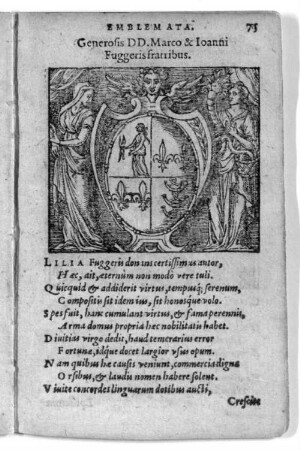 EMBLEMATA. 75
Generosis DD. Marco & Ioanni
Fuggeris fratribus.
LILIA Fuggeris don certissimus autor,
Hæc, ait, æternùm non modò vere tuli.
Quicquid & addiderit virtus, tempusq; serenum,
Compositis sit idem ius, sit honosque volo.
Spes fuit, hanc cumulant virtus, & fama perennis,
Arma domus propria hec nobilitatis habet.
Diuitias virgo dedit, haud temerarius error
Fortunæ, idque docet largior vsus opum.
Nam quibus hæ causis veniunt, commercia digna
Orsibus, & laudis nomen habere solent.
Viuite concordes linguarum dotibus aucti,
Crescite